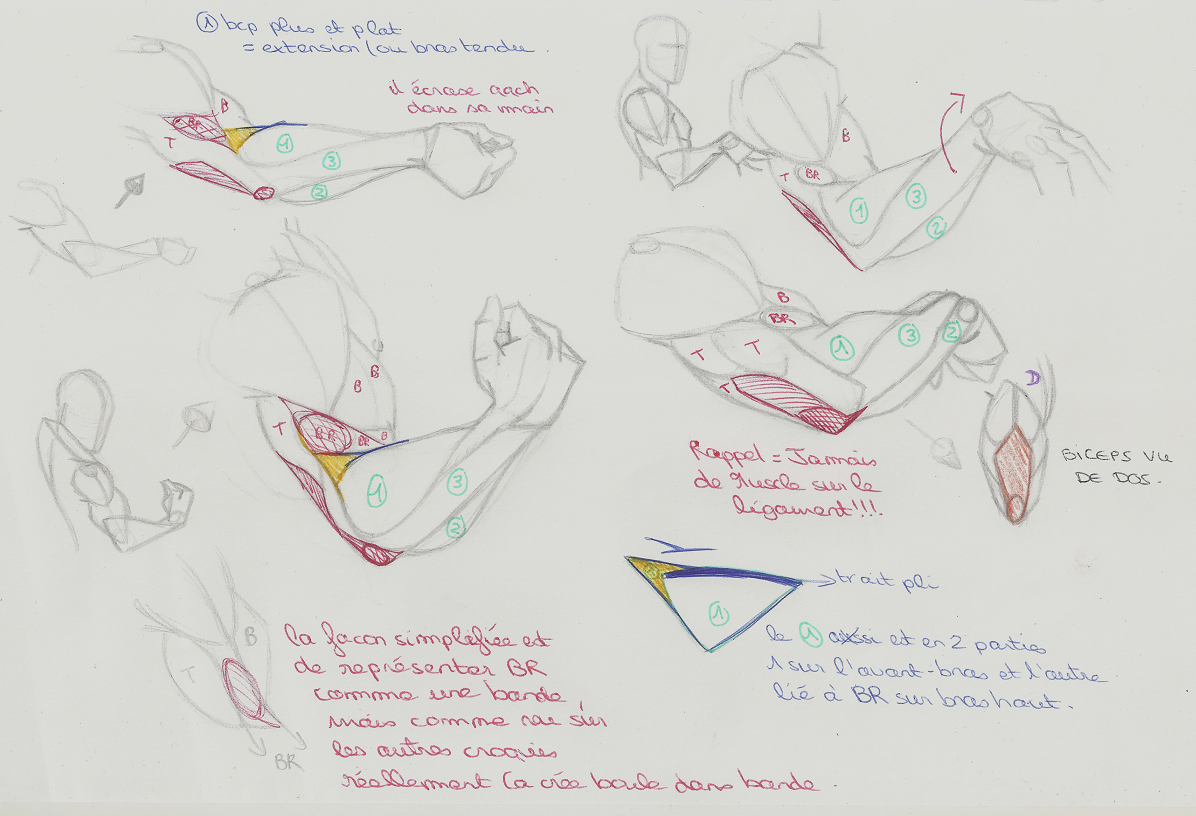 ① bcp plus et plat
= extension (ou bras tendu.
il écrase aach
dans sa main
B
BR
T
1
3
2
B
T
BR
1
3
2
B
BR
T
T
T
1
3
2
B
B
T
BR
BR
B
1
3
2
D
BICEPS VU
DE DOS.
Rappel = Jamais
de Muscle sur le
légament!!!.
1
trait pli
le ① aussi et en 2 parties
1 sur l'avant-bras et l'autre
lié à BR sur bras haut.
B
T
BR
la façon simplefiée et
de représenter BR
comme une bande
mais comme vu sur
les autres croquis
réellement Ca crée boule dans bande.